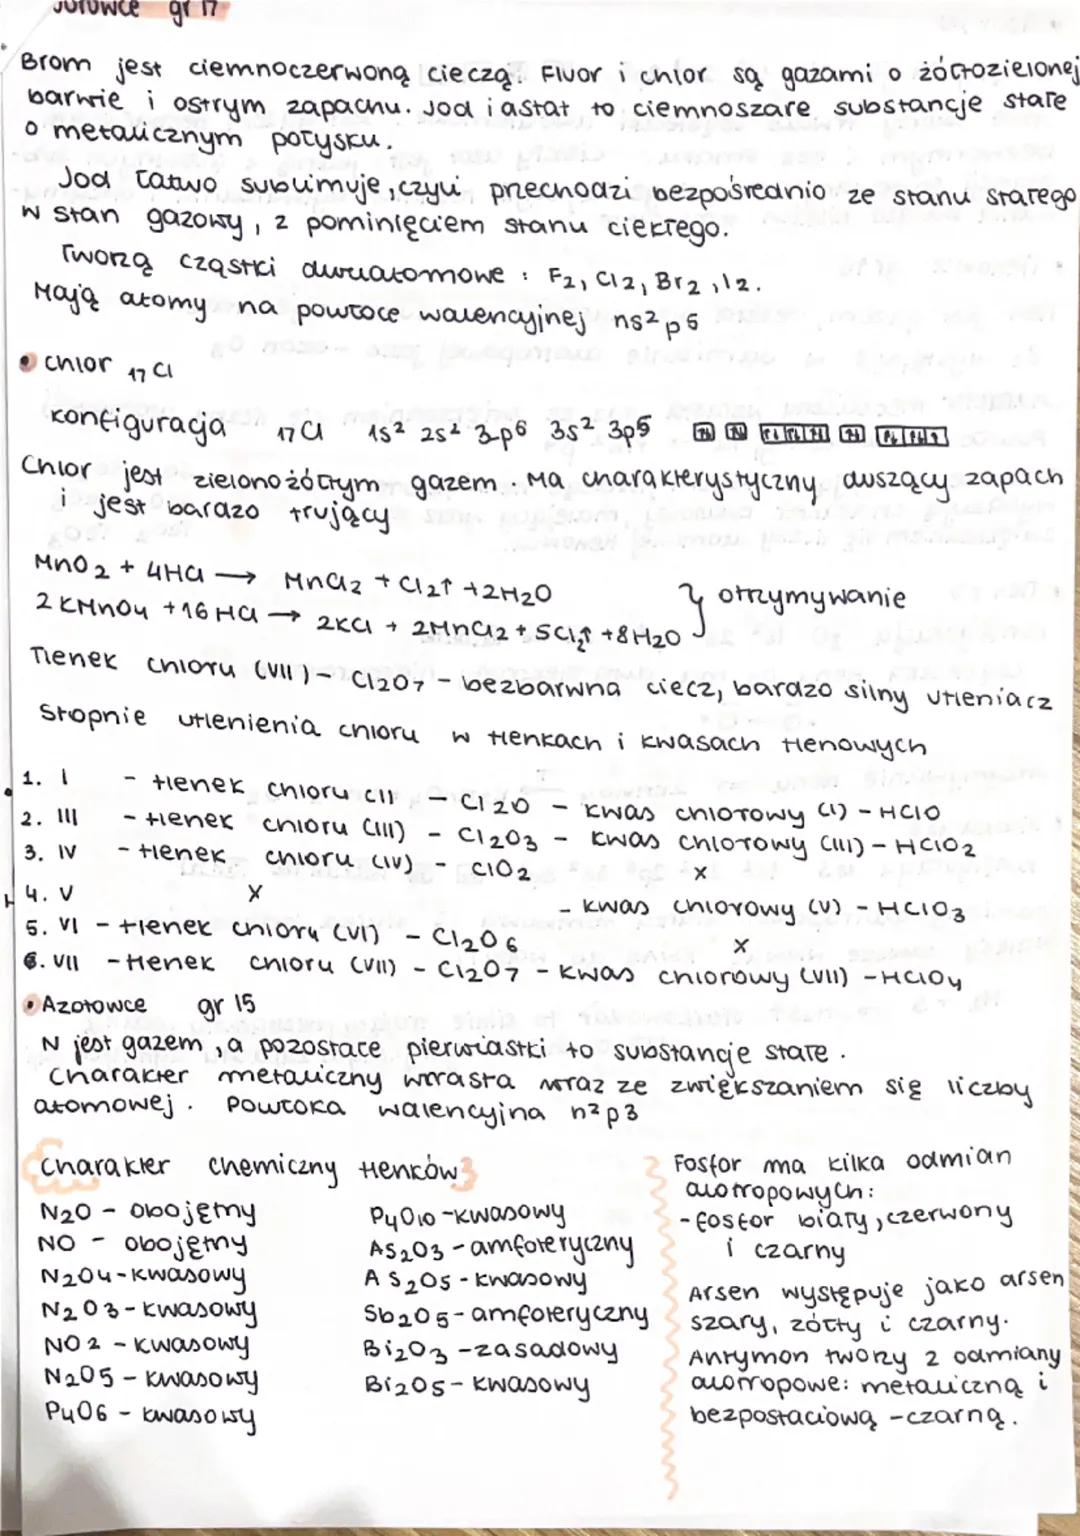 Jurowce gr 17
Brom jest ciemnoczerwoną cieczą. Fluor i chlor są gazami o żółtozielonej
barwie i ostrym zapachu. Jod i astat to ciemnoszare substancje stałe
o metalicznym połysku.
Jod łatwo sublimuje, czyli przechodzi bezpośrednio ze stanu stałego
w stan gazowy, z pominięciem stanu ciekłego.
Tworzą cząstki dwuatomowe : F2, Cl2, Br2, I2.
Mają atomy na powłoce walencyjnej ns2 p5
• chlor 17 Cl
konfiguracja 17 Cl 1s2 2s2 3p6 3s2 3p5
Chlor jest zielonożółtym gazem. Ma charakterystyczny duszący zapach
i jest bardzo trujący
MnO2 + 4HCl → MnCl2 + Cl2↑ + 2H2O
2 KMnO4 + 16 HCl → 2KCl + 2MnCl2 + 5Cl2↑ + 8H2O } otrzymywanie
Tlenek chloru (VII) - Cl2O7 - bezbarwna ciecz, bardzo silny utleniacz
Stopnie utlenienia chloru w tlenkach i kwasach tlenowych
1. I - tlenek chloru (I) - Cl2O - kwas chlorowy (I) - HClO
2. III - tlenek chloru (III) - Cl2O3 - kwas chlorowy (III) - HClO2
3. IV - tlenek chloru (IV) - ClO2 x
4. V x - kwas chlorowy (V) - HClO3
5. VI - tlenek chloru (VI) - Cl2O6 x
6. VII - tlenek chloru (VII) - Cl2O7 - kwas chlorowy (VII) - HClO4
• Azotowce gr 15
N jest gazem, a pozostałe pierwiastki to substancje stałe.
Charakter metaliczny wzrasta wraz ze zwiększaniem się liczby
atomowej. Powłoka walencyjna n2p3
Charakter chemiczny tlenków
N2O - obojętny
NO - obojętny
N2O4 - kwasowy
N2O3 - kwasowy
NO2 - kwasowy
N2O5 - kwasowy
P4O6 - kwasowy
P4O10 - kwasowy
As2O3 - amfoteryczny
As2O5 - kwasowy
Sb2O5 - amfoteryczny
Bi2O3 - zasadowy
Bi2O5 - kwasowy
Fosfor ma kilka odmian
alotropowych:
- fosfor biały, czerwony
i czarny
Arsen występuje jako arsen
szary, żółty i czarny.
Antymon tworzy 2 odmiany
alotropowe: metaliczną i
bezpostaciową - czarną.